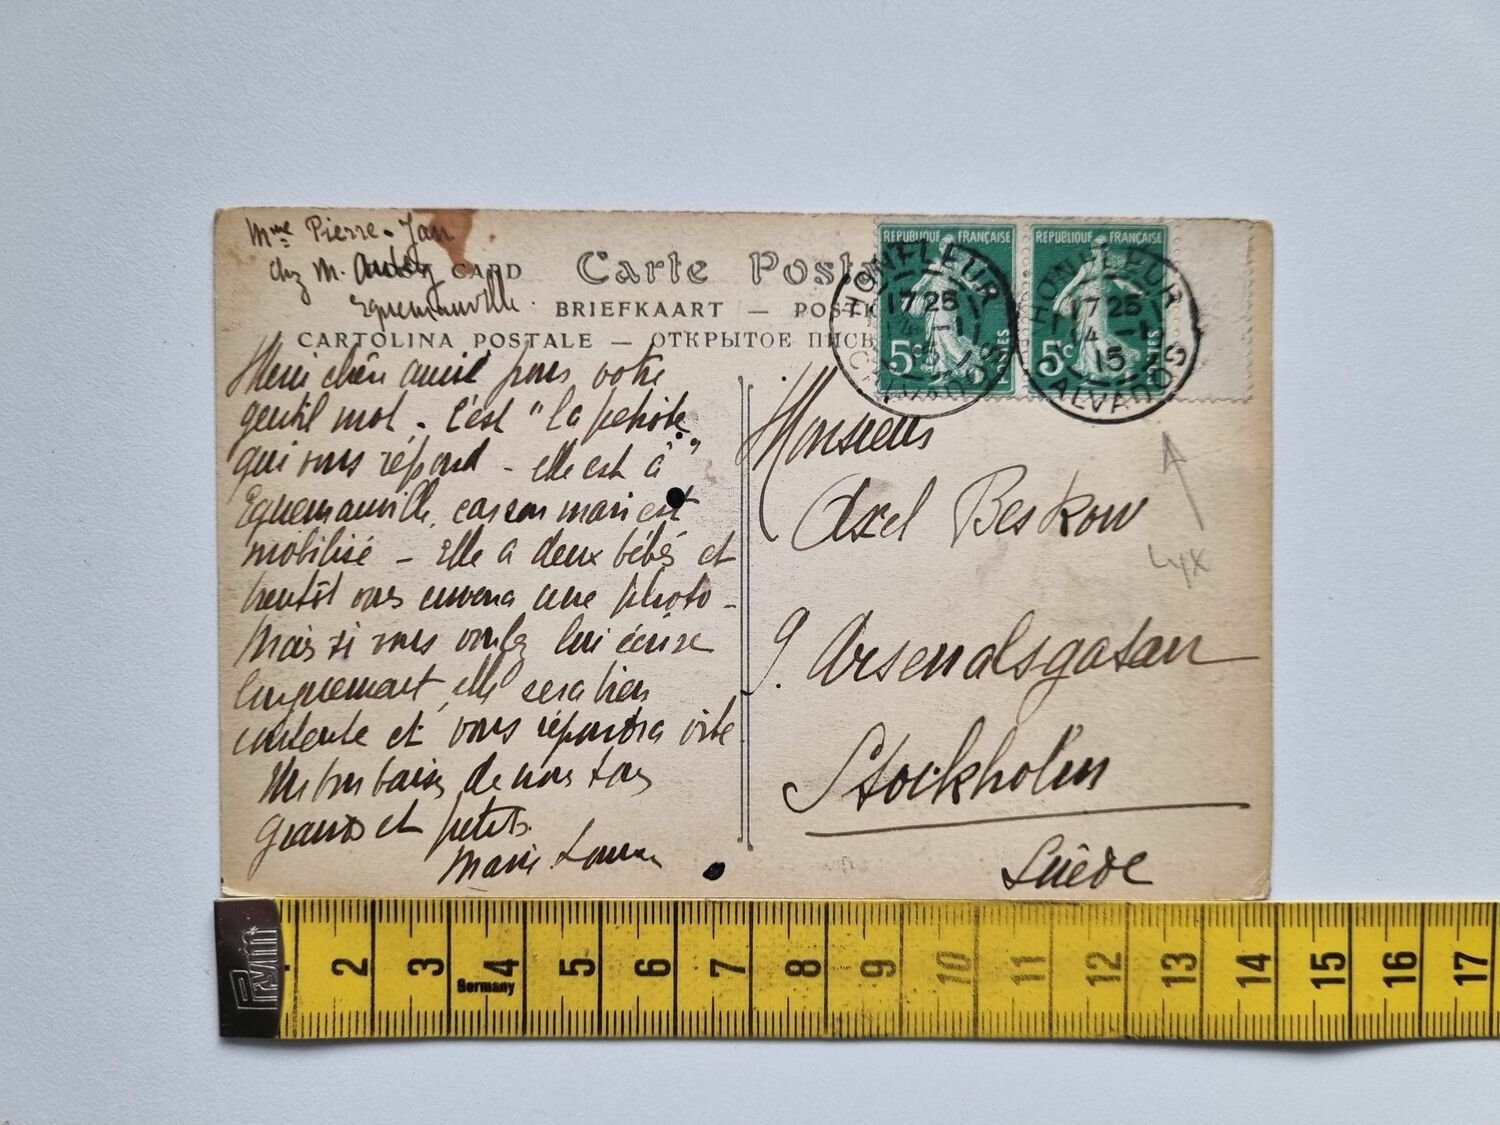 Mme Pierre-Jan
chez M.
Equemauville
CARD Carte Posta
BRIEFKAART — POSTK
CARTOLINA POSTALE — ОТКРЫТОЕ ПИСЬ
Merci cher ami pour votre
gentil mot - C'est "la petite"
qui vous répond - elle est à
Equemauville, car son mari est
mobilisé - Elle a deux bébés et
bientôt vous enverra une photo -
Mais si vous voulez lui écrire
longuement, elle sera bien
contente et vous répondra vite
de nous tous
grands et petits.
Marie
RÉPUBLIQUE FRANÇAISE
5c
POSTES
RÉPUBLIQUE FRANÇAISE
5c
POSTES
HONFLEUR
17 25
4 -1
15
CALVADOS
HONFLEUR
17 25
4 -1
15
CALVADOS
Monsieur
Axel Beskow
9. Arsenalsgatan
Stockholm
Suède
Lyx
Prym
2 3 4 5 6 7 8 9 10 11 12 13 14 15 16 17
Germany